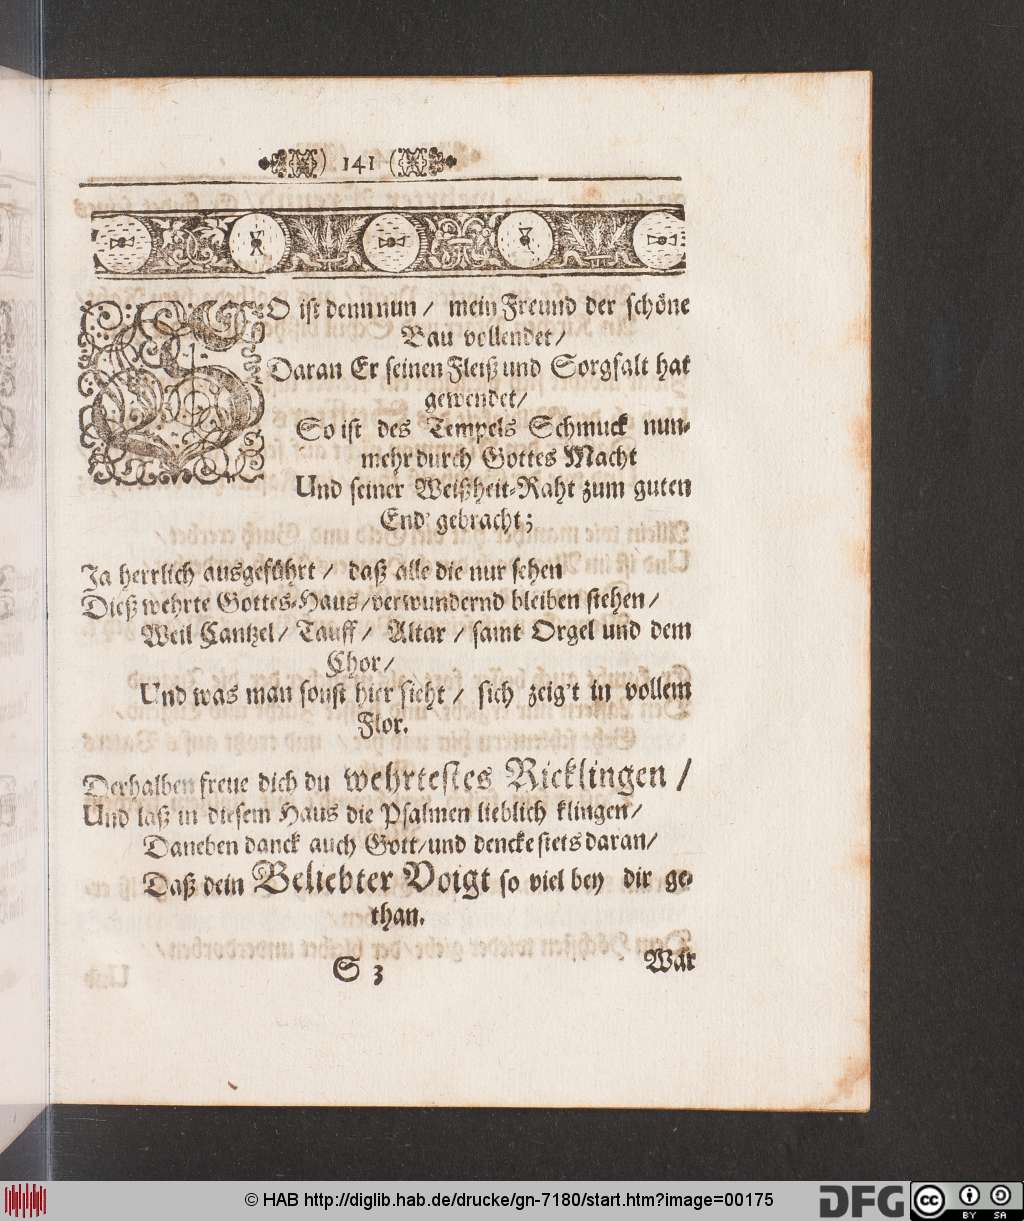 ) 141 (
SO ist denn nun / mein Freund der schöne
Bau vollendet /
Daran Er seinen Fleiß und Sorgfalt hat
gewendet /
So ist des Tempels Schmuck nun-
mehr durch Gottes Macht
Und seiner Weißheit-Raht zum guten
End' gebracht;
Ja herrlich ausgeführt / daß alle die nur sehen
Dieß wehrte Gottes-Haus / verwundernd bleiben stehen /
Weil Cantzel / Tauff / Altar / samt Orgel und dem
Chor /
Und was man sonst hier sieht / sich zeig't in vollem
Flor.
Derhalben freue dich du wehrtestes Ricklingen /
Und laß in diesem Haus die Psalmen lieblich klingen /
Daneben danck auch Gott / und dencke stets daran /
Daß dein Beliebter Voigt so viel bey dir ge-
than.
S 3
Wär
© HAB http://diglib.hab.de/drucke/gn-7180/start.htm?image=00175
DFG
cc BY SA